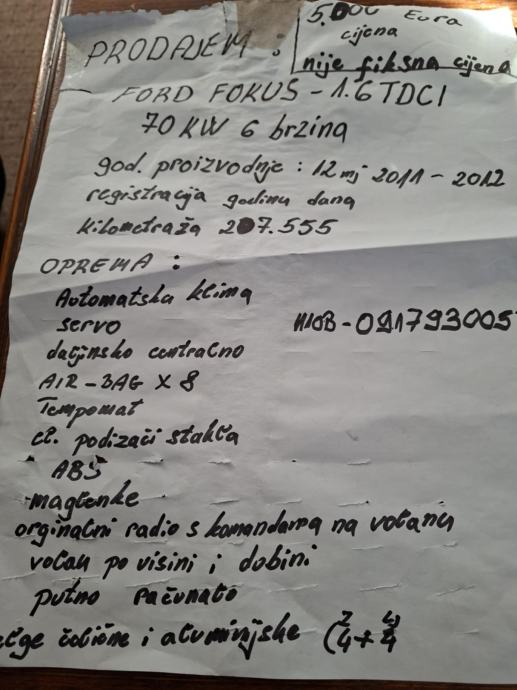 5.000 Eura
cijena
nije fiksna cijena
PRODAJEM :
FORD FOKUS - 1.6 TDCI
70 KW 6 brzina
god. proizvodnje : 12 mj 2011 - 2012
registracija godinu dana
kilometraža 207.555
OPREMA :
Automatska klima
servo
MOB - 091793005
daljinsko centralno
AIR - BAG X 8
Tempomat
el. podizači stakla
ABS
maglenke
orginalni radio s komandama na volanu
volan po visini i dubini
putno računalo
čelične i aluminijske